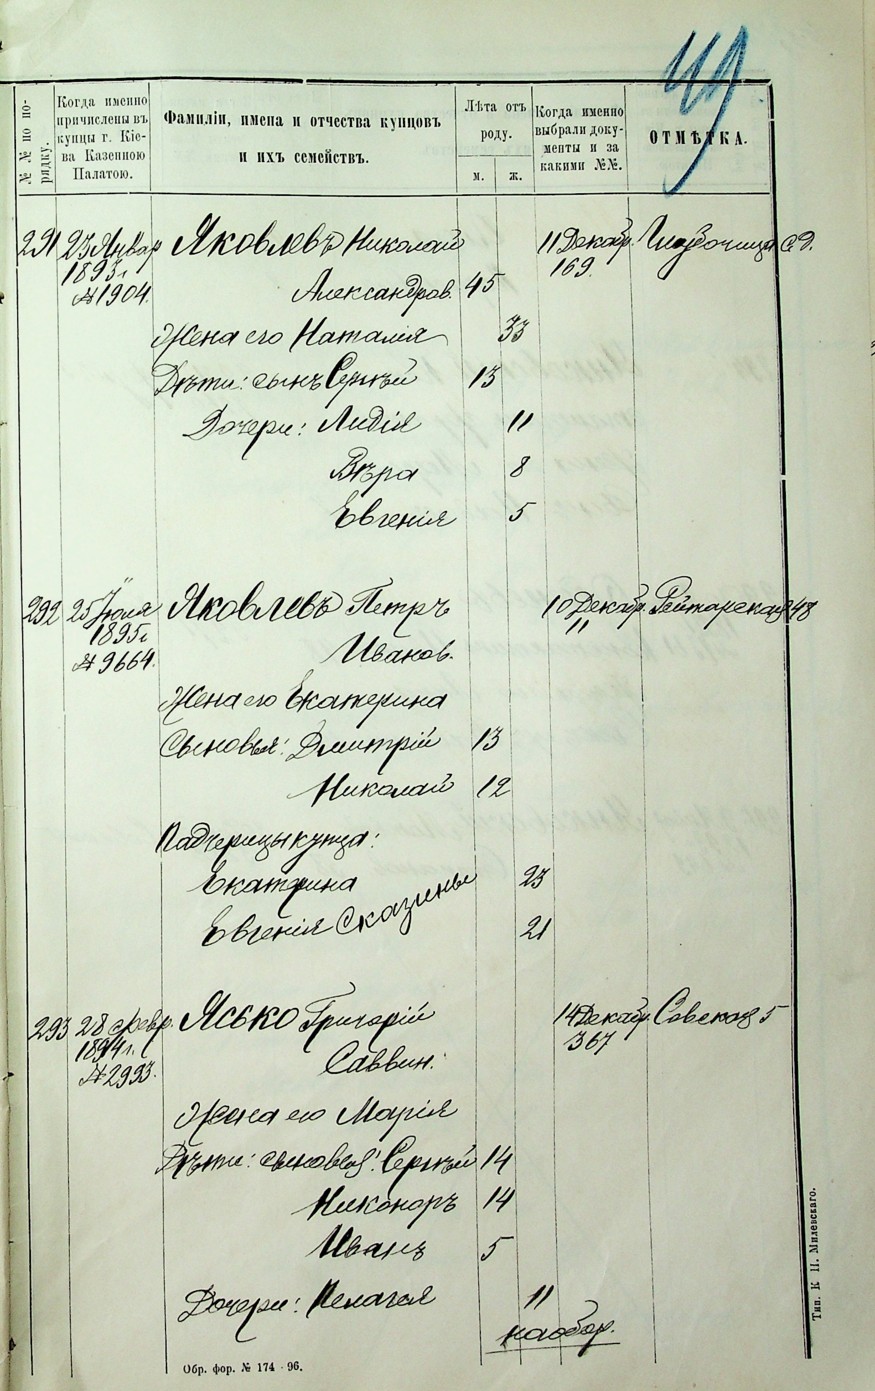 49
№№ по по-
рядку.
Когда именно
причислены въ
купцы г. Кіе-
ва Казенною
Палатою.
Фамиліи, имена и отчества купцовъ
и ихъ семействъ.
Лѣта отъ
роду.
м. ж.
Когда именно
выбрали доку-
менты и за
какими №№.
ОТМѢТКА.
291 23 Январ Яковлевъ Николай 11 Декабр. Глубочица с. д.
1893 г. 169.
№ 1904. Александров. 45
Жена его Наталія 33
Дѣти: сынъ Сергѣй 13
Дочери: Лидія 11
Вѣра 8
Евгенія 5
292 25 Іюля Яковлевъ Петръ 10 Декабр. Рейтарская 48
1895 г. 11
№ 9664. Иванов.
Жена его Екатерина
Сыновья: Дмитрій 13
Николай 12
Падчерицы купца:
Екатерина 23
Евгенія Сказины 21
293 28 Февр. Ясько Григорій 14 Декабр. Совская 5
1894 г. 367
№ 2993. Саввин.
Жена его Марія
Дѣти: сыновья: Сергѣй 14
Никоноръ 14
Иванъ 5
Дочери: Пелагея 11
на обор.
Обр. фор. № 174 - 96.
Тип. К Н. Милевскаго.